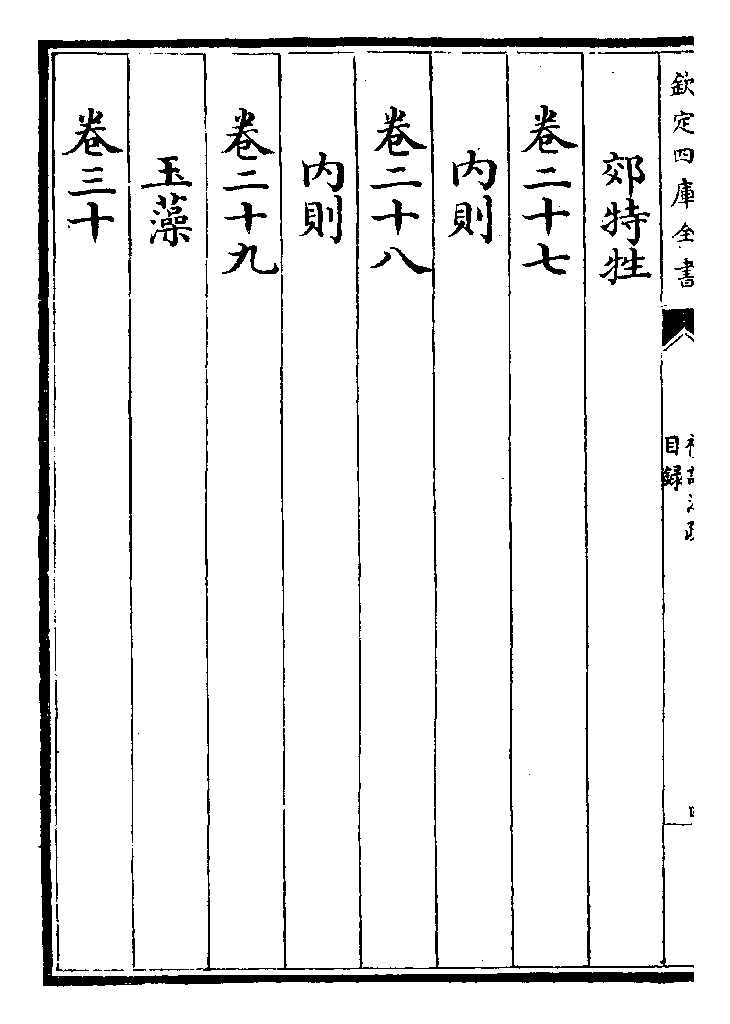 欽定四庫全書
目錄
郊特牲
卷二十七
內則
卷二十八
內則
卷二十九
玉藻
卷三十